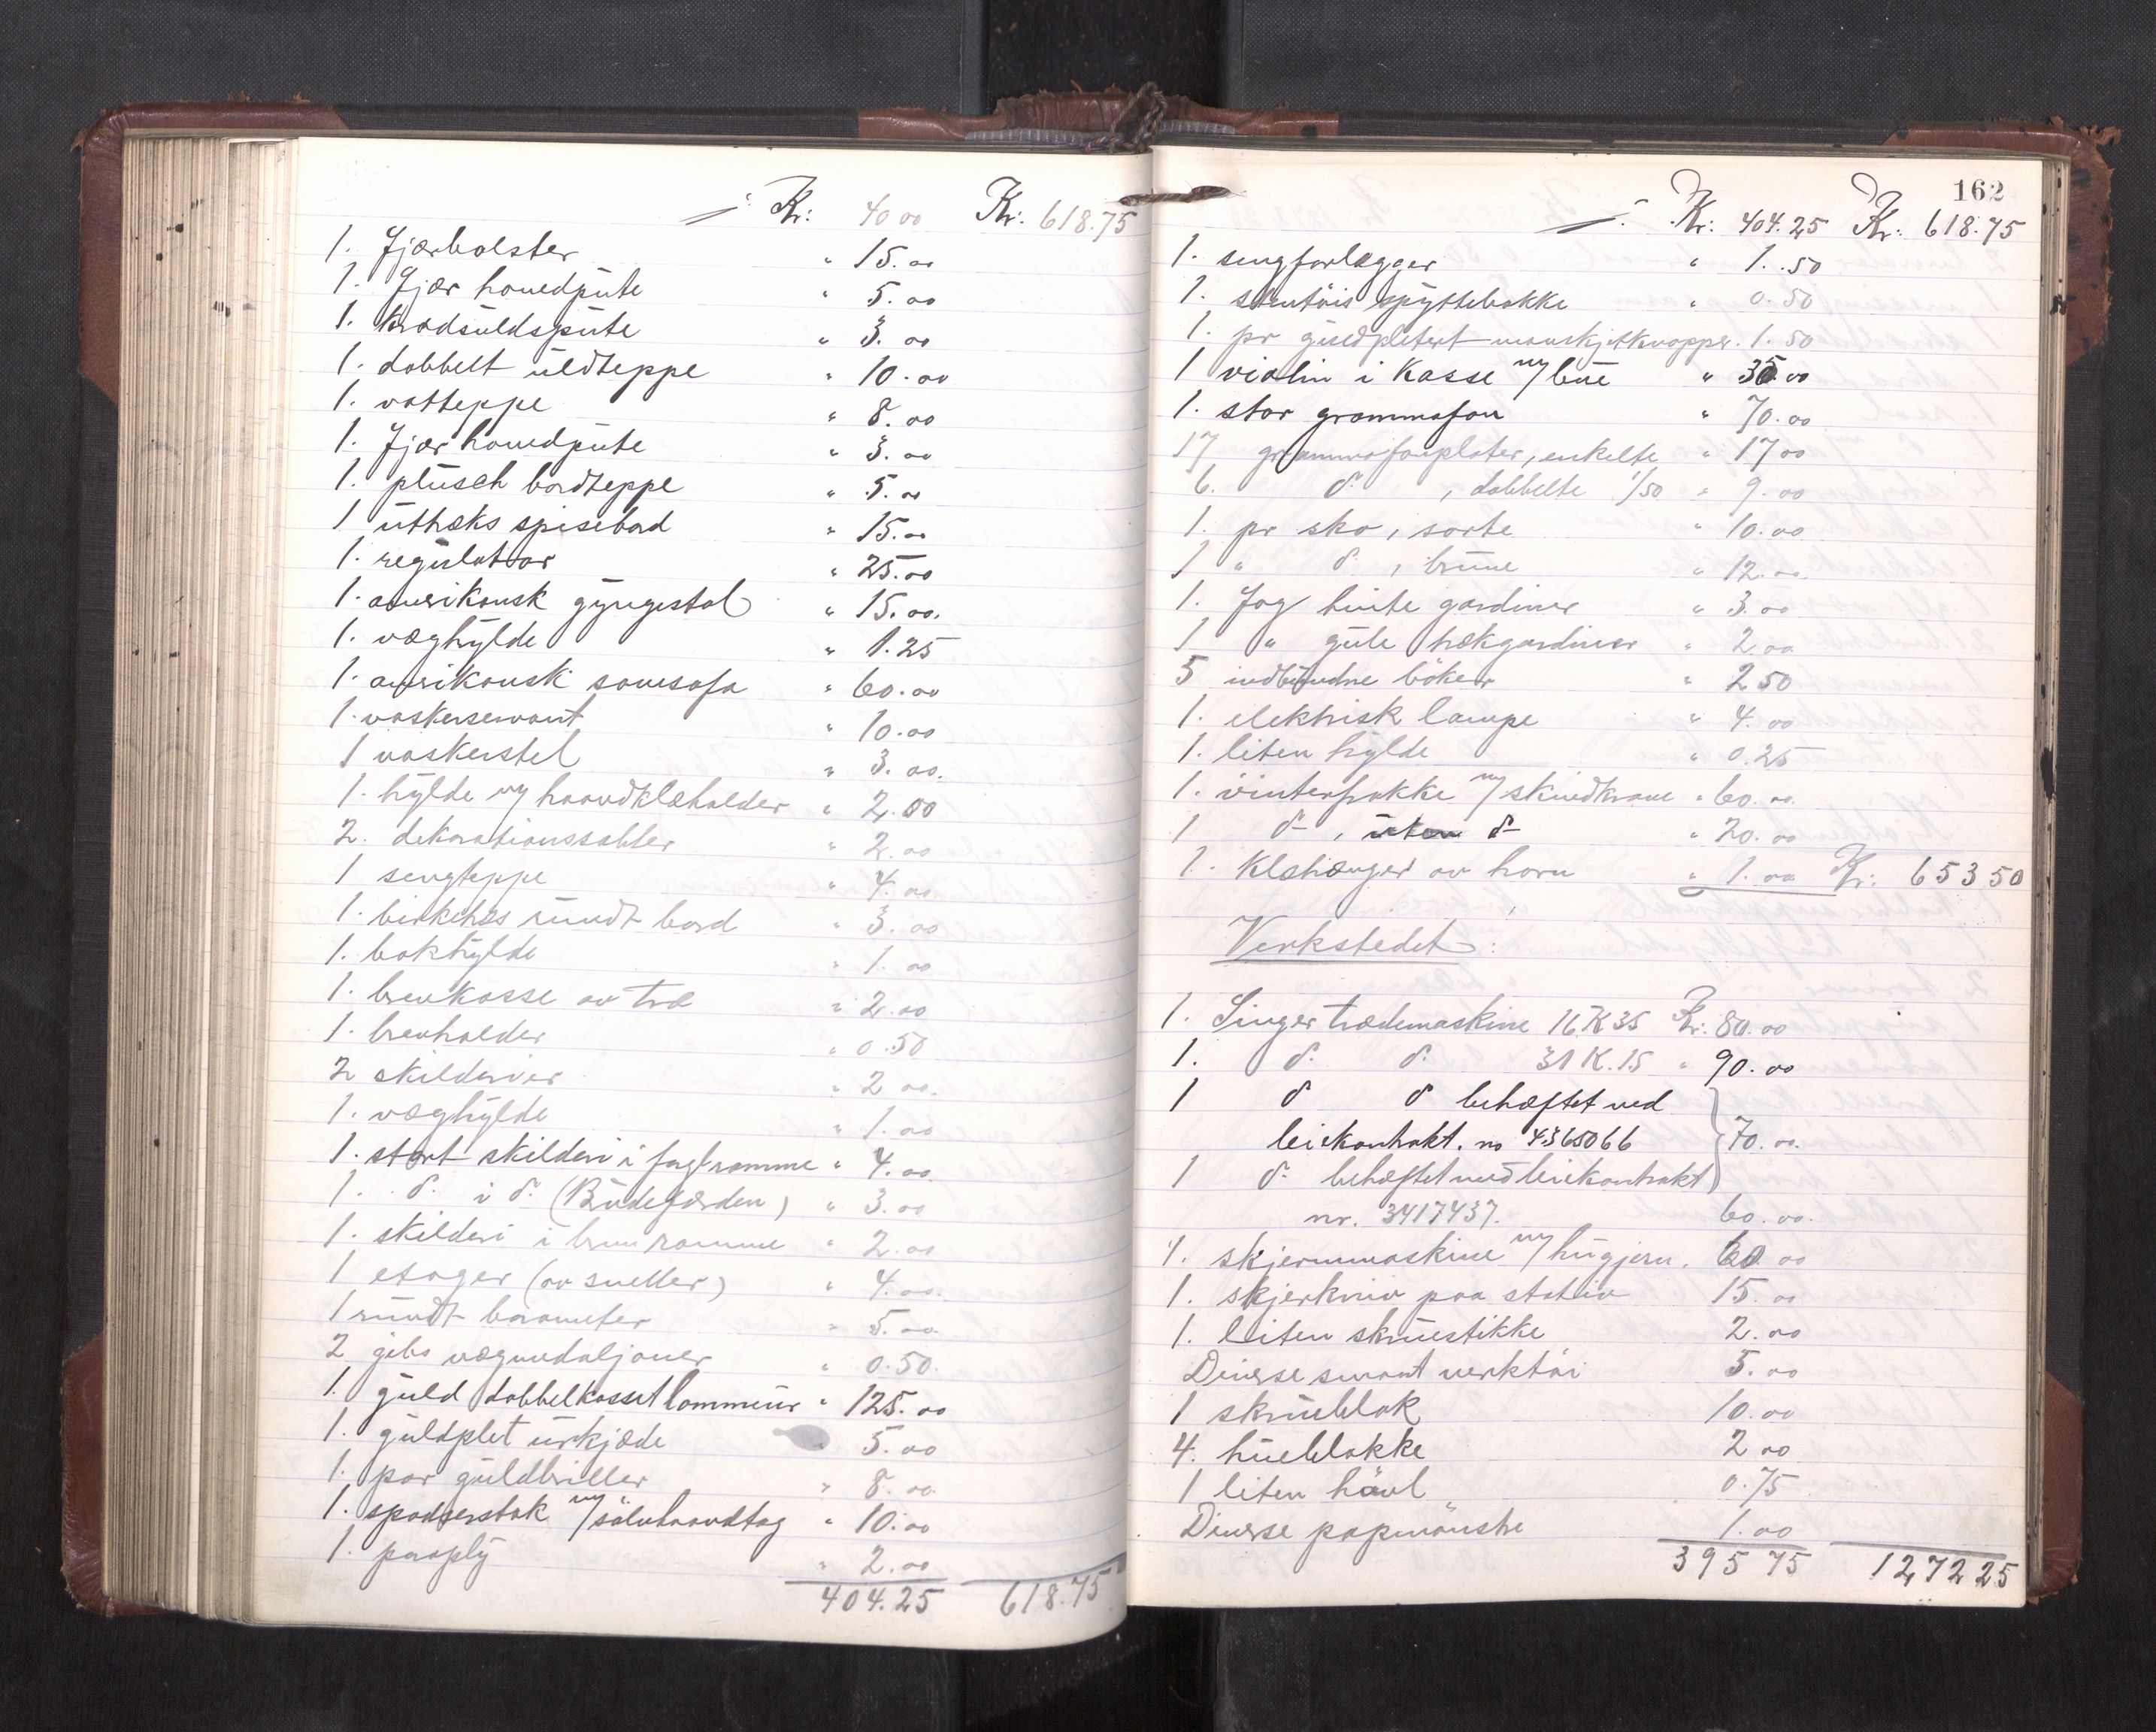 ÷ Kr: 40 00 Kr: 618.75
1. Fjærbolster " 15.00
1. Fjær hovedpute " 5.00
1. krøduldspute " 3.00
1. dobbelt uldteppe " 10.00
1. vatteppe " 8.00
1. Fjær hovedpute " 3.00
1. plusch bordteppe " 5.00
1 uttræks spisebord " 15.00
1. regulator " 25.00
1. amerikansk gyngestol " 15.00.
1. væghylde " 1.25
1. amerikansk sovesofa " 60.00
1. vaskeservant " 10.00
1 vaskestel " 3.00.
1. hylde m/ haandklæholder " 2.00
2. dekorationssabler " 2.00
1 sengteppe " 4.00
1. birketræs rundt bord " 3.00
1. bokhylde " 1.00
1. brevkasse av træ " 2.00
1. brevholder " 0.50
2 skilderier " 2 00.
1. væghylde " 1.00
1. stort skilderi i forgl. ramme " 4.00
1. do. i do. (Brudefærden) " 3.00
1. skilderi i brun ramme " 2.00
1 etager (av sneller) " 4.00.
1 rundt barometer " 5.00.
2 gibs vægmedaljoner " 0.50.
1. guld dobbelkasset lommeur " 125.00
1. guldplet urkjæde " 5.00
1. par guldbriller " 8.00
1. spadserstok m/ sølvhaandtag " 10.00
1. paraply " 2.00
404.25 618.75
162
÷ Kr: 404.25 Kr: 618.75
1. sengforlægger " 1.50
1. stentöis spyttebakke " 0.50
1. pr guldpletert manskjetknapper. 1.50
1 violin i kasse m/ bue " 35.00
1. stor grammofon " 70.00
17 grammofonplater, enkelte " 17 00
6. do , dobbelte 1/50 " 9.00
1. pr sko, sorte " 10.00
1 " do , brune " 12.00.
1. Fag hvite gardiner " 3.00
1 " gule trækgardiner " 2.00
5 indbundne böker " 2 50
1. elektrisk lampe " 4.00
1. liten hylde " 0.25
1. vinterfrakke m/ skindkrave " 60.00.
1 do , uten do " 20.00
1. Klæhænger av horn " 1.00 Kr: 653 50
Verkstedet:
1. Singer trædemaskine 16 K 35 Kr: 80.00
1. do. do. 31 K.15 " 90.00
1 do do behæftet ved
leiekontrakt. no 4365066 70.00.
1 do. behæftet ved leiekontrakt
nr. 3417437. 60.00.
1. skjermmaskine m/ hugjern. 60.00
1. skjerkniv paa stativ 15.00
1. liten skruestikke 2.00
Diverse smaat verktöi 5.00
1 skrueblok 10.00
4. hueblokke 2 00
1 liten hövl 0.75
Diverse papmönstre 1.00
395 75 1272 25